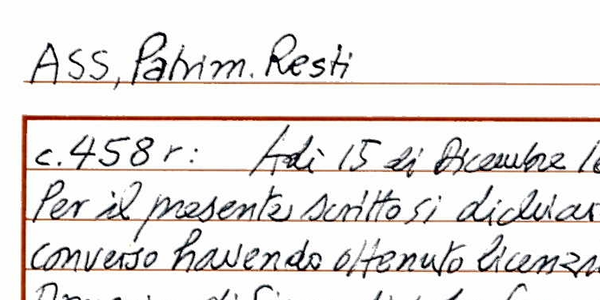 ASS, Patrim. Resti
c. 458 r: Adì 15 di Dicembre 16
Per il presente scritto si dichiar
converso havendo ottenuto licenza